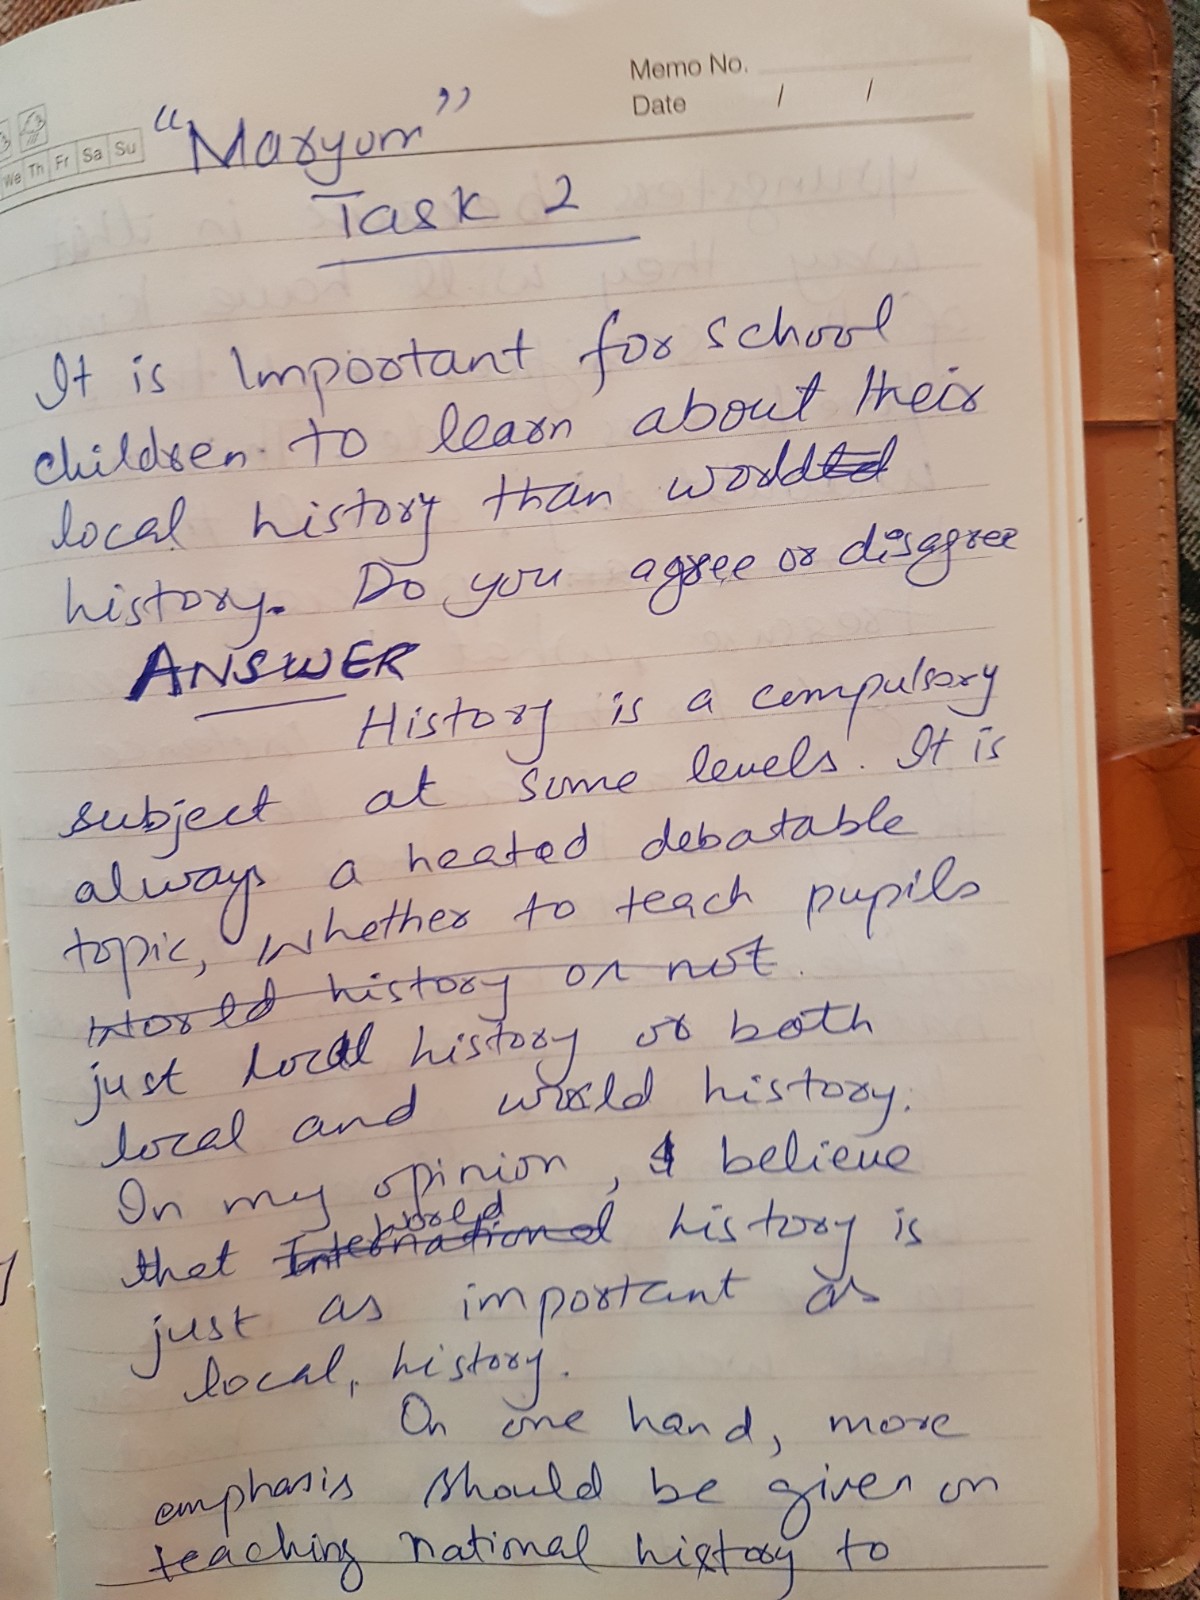 Memo No.
Date / /
We Th Fr Sa Su
"Maryum"
Task 2
It is Important for school
children to learn about their
local history than world
history. Do you agree or disagree
ANSWER
History is a compulsory
subject at some levels. It is
always a heated debatable
topic, Whether to teach pupils
World history or not.
just local history or both
local and world history.
In my opinion, I believe
that International world history is
just as important as
local, history.
On one hand, more
emphasis should be given on
teaching national history to